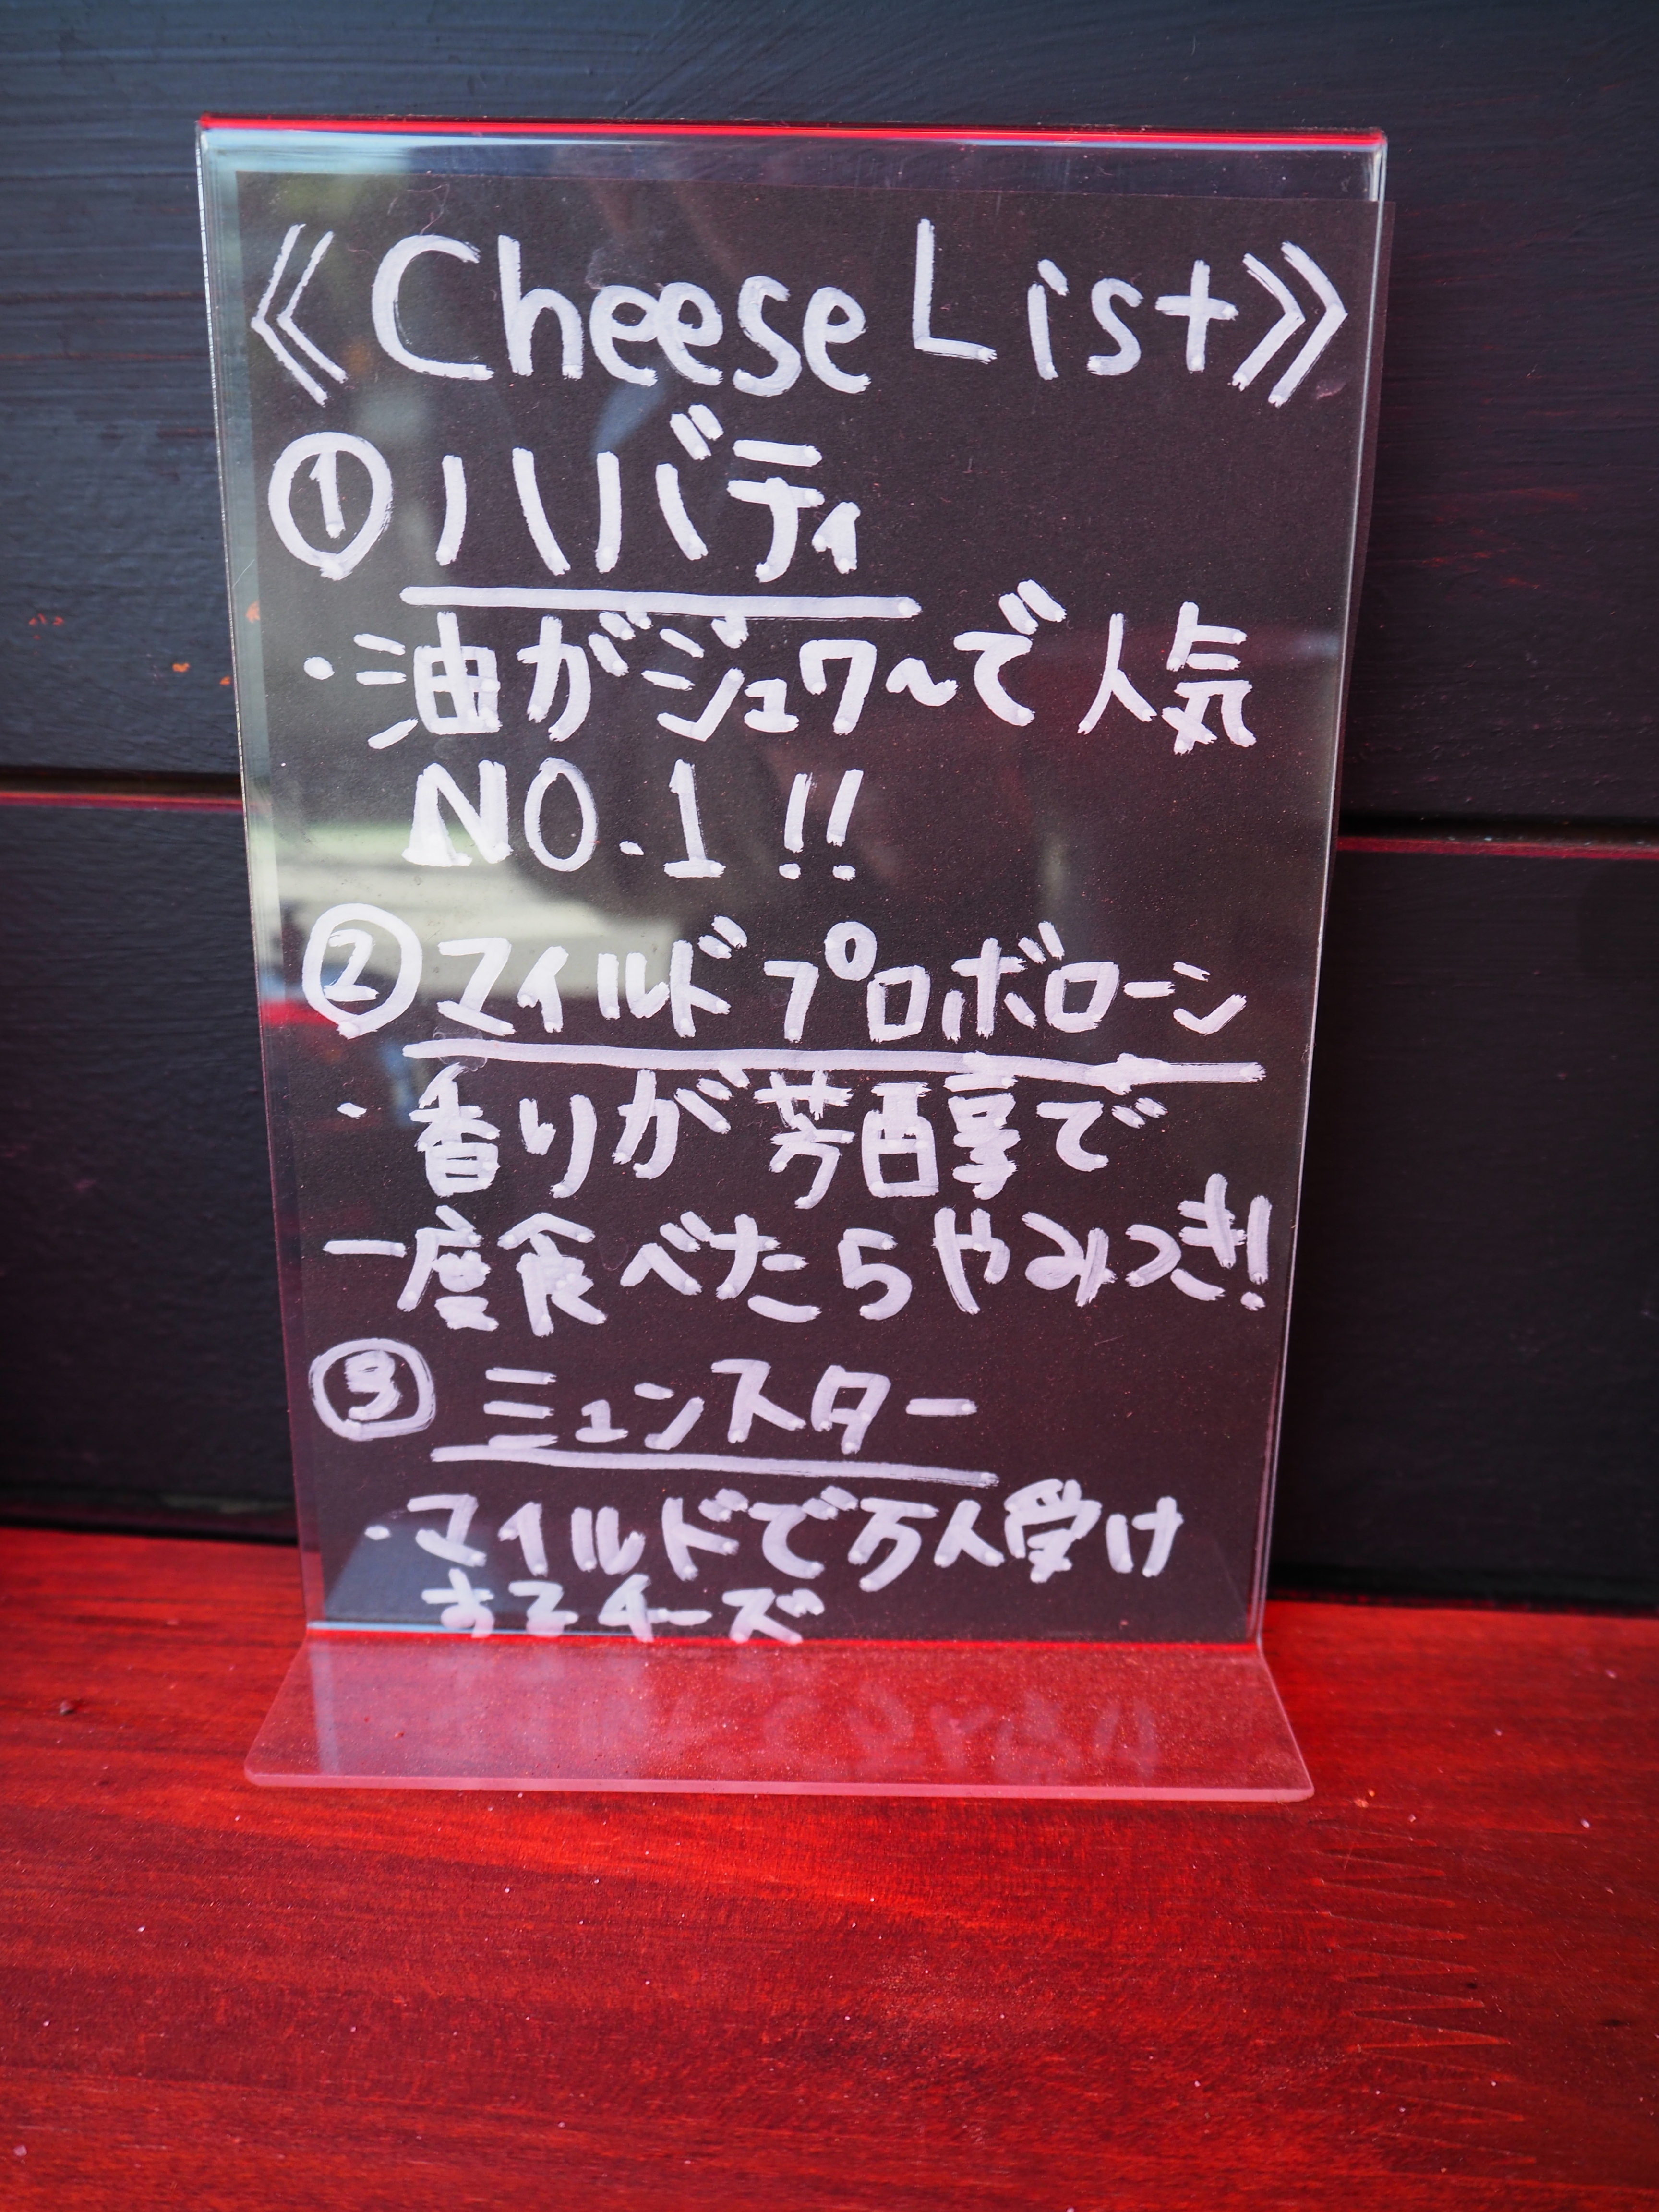 《Cheese List》
① ハバティ
・油がジュワ〜で人気
NO.1!!
② マイルドプロボローン
・香りが芳醇で
一度食べたらやみつき!
③ ミュンスター
・マイルドで万人受け
するチーズ